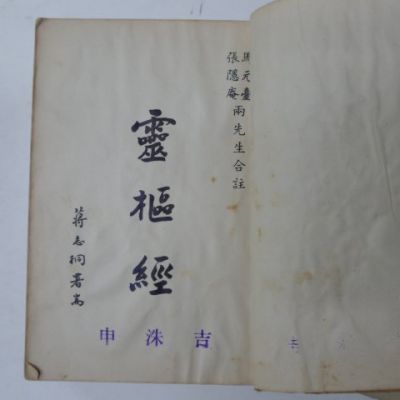 馬元臺
張隱庵
兩先生合註
靈樞經
蔣志桐署耑
申洙吉